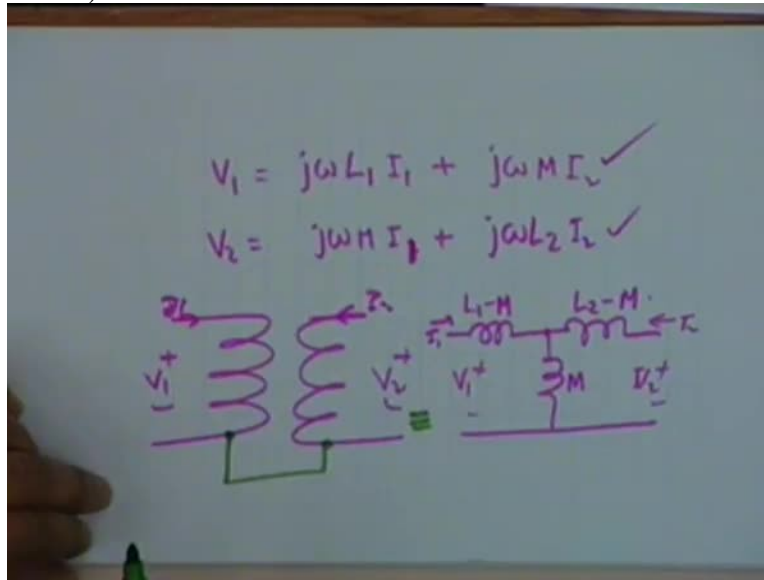 V₁ = jωL₁ I₁ + jωM I₂ ✓
V₂ = jωM I₁ + jωL₂ I₂ ✓
I₁ I₂ L₁-M L₂-M
I₁ I₂
V₁ + - V₂ + - ≡ V₁ + - M V₂ + -